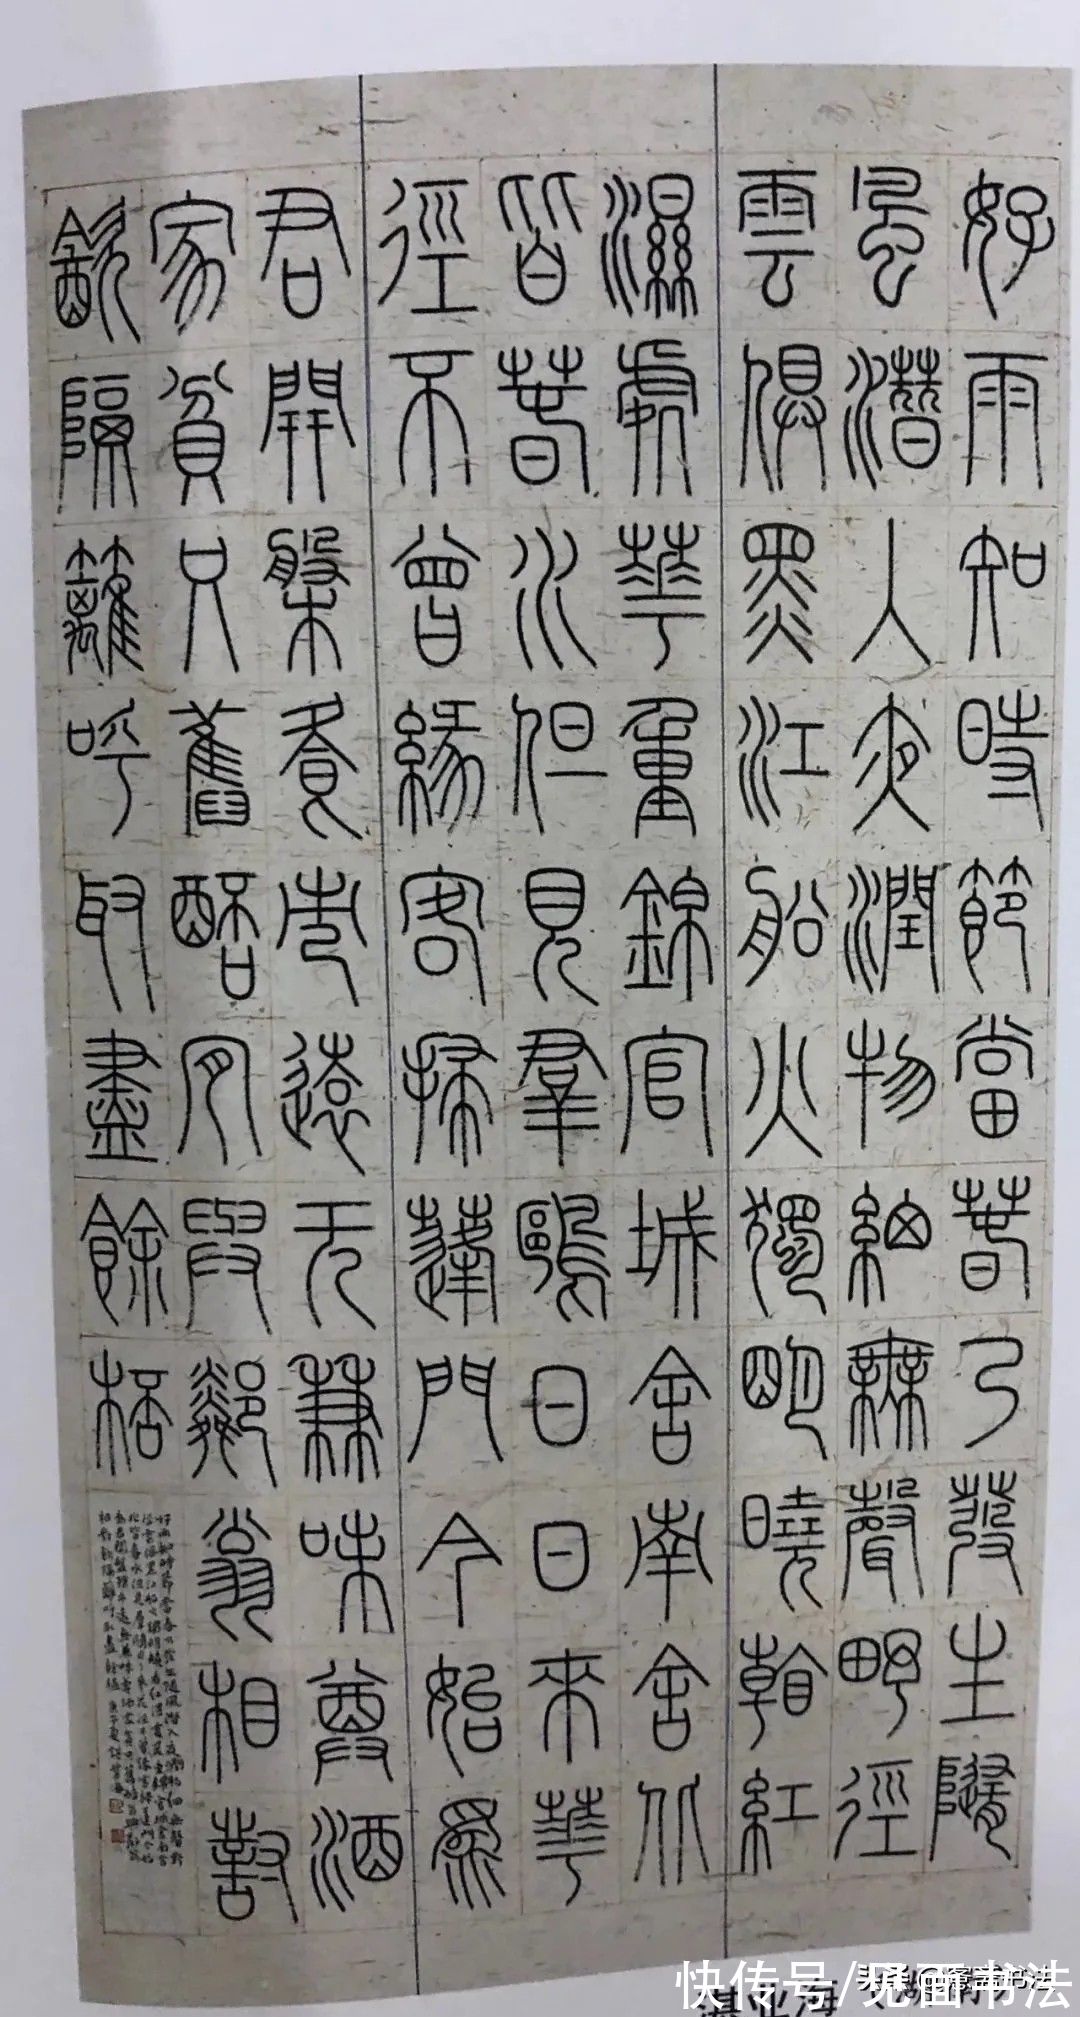 好雨知時節當春乃發生隨
風潛入夜潤物細無聲野徑
雲俱黑江船火獨明曉看紅
濕處華重錦官城舍南舍北
皆春水但見羣鷗日日來華
徑不曾緣客掃蓬門今始為
君開盤飧市遠无兼味尊酒
家貧只舊醅肎與鄰翁相對
飲隔籬呼取盡餘杯
快传号/见面书法